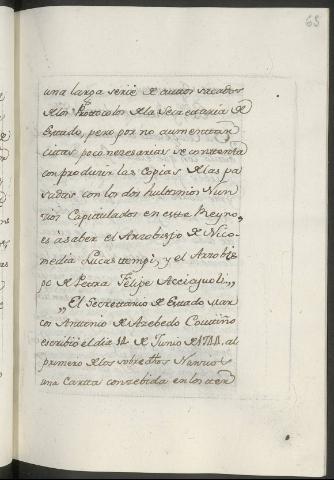 65
una larga serie de autos sacados
de los Protocolos de la Secretaria de
Estado, pero por no aumentar
cittas poco nezesarias se contenta
con produzir las copias de las pa
sadas con los dos hultimos Nun
zios Capitulados en este Reyno,
es à saber el Arzobispo de Nico
media Lucas tempi, y el Arzobis
po de Petra Felipe Acciajuoli,,
,,El Secrettario de Estado Mar
cos Anttonio de Azebedo Coutiño
escribio el dia 14 de Junio de 1744, al
primero de los sobredhos Nunzios
una Cartta conzebida en los ter